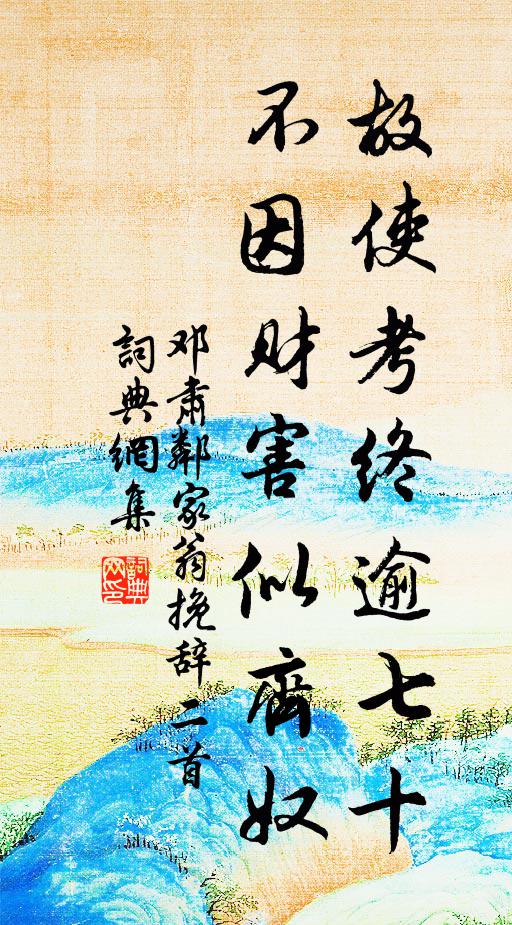 故使考终逾七十
不因财害似齊奴
邓肃鄰家翁挽辞二首
詞典網集
詞典网印